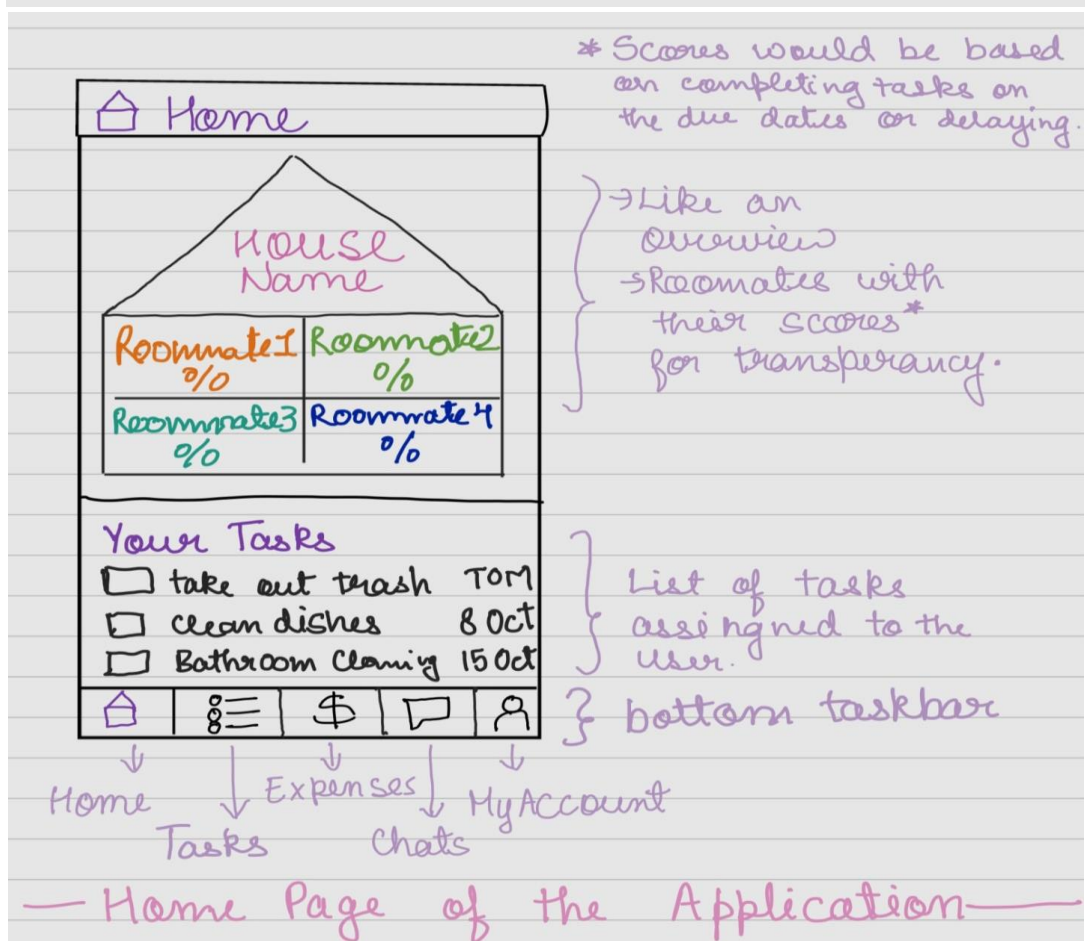 * Scores would be based
on completing tasks on
the due dates or delaying.
Home
House
Name
Roommate1 Roommate2
% %
Roommate3 Roommate4
% %
→Like an
overview
→Roomates with
their scores*
for transperancy.
Your Tasks
take out trash TOM
clean dishes 8 Oct
Bathroom Cleaning 15 Oct
List of tasks
assingned to the
user.
$
bottom taskbar
Home
Tasks
Expenses
Chats
My Account
— Home Page of the Application —